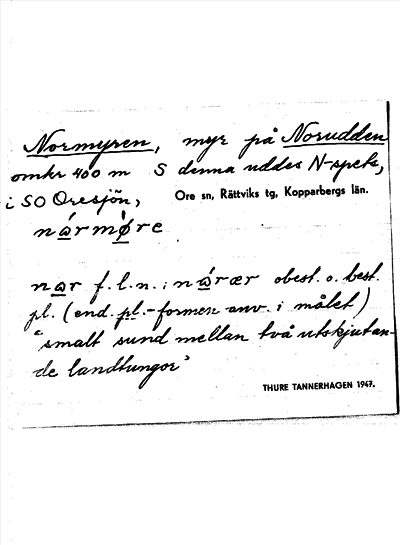 Normyren, myr på Norudden
omkr 400 m S denna uddes N-spets,
i SO Oresjön, Ore sn, Rättviks tg, Kopparbergs län.
nármǿre
nar f.l.n.; nárær obest. o. best.
pl. (end. pl.-formen anv. i målet)
"smalt sund mellan två utskjutan-
de landtungor"
THURE TANNERHAGEN 1947.